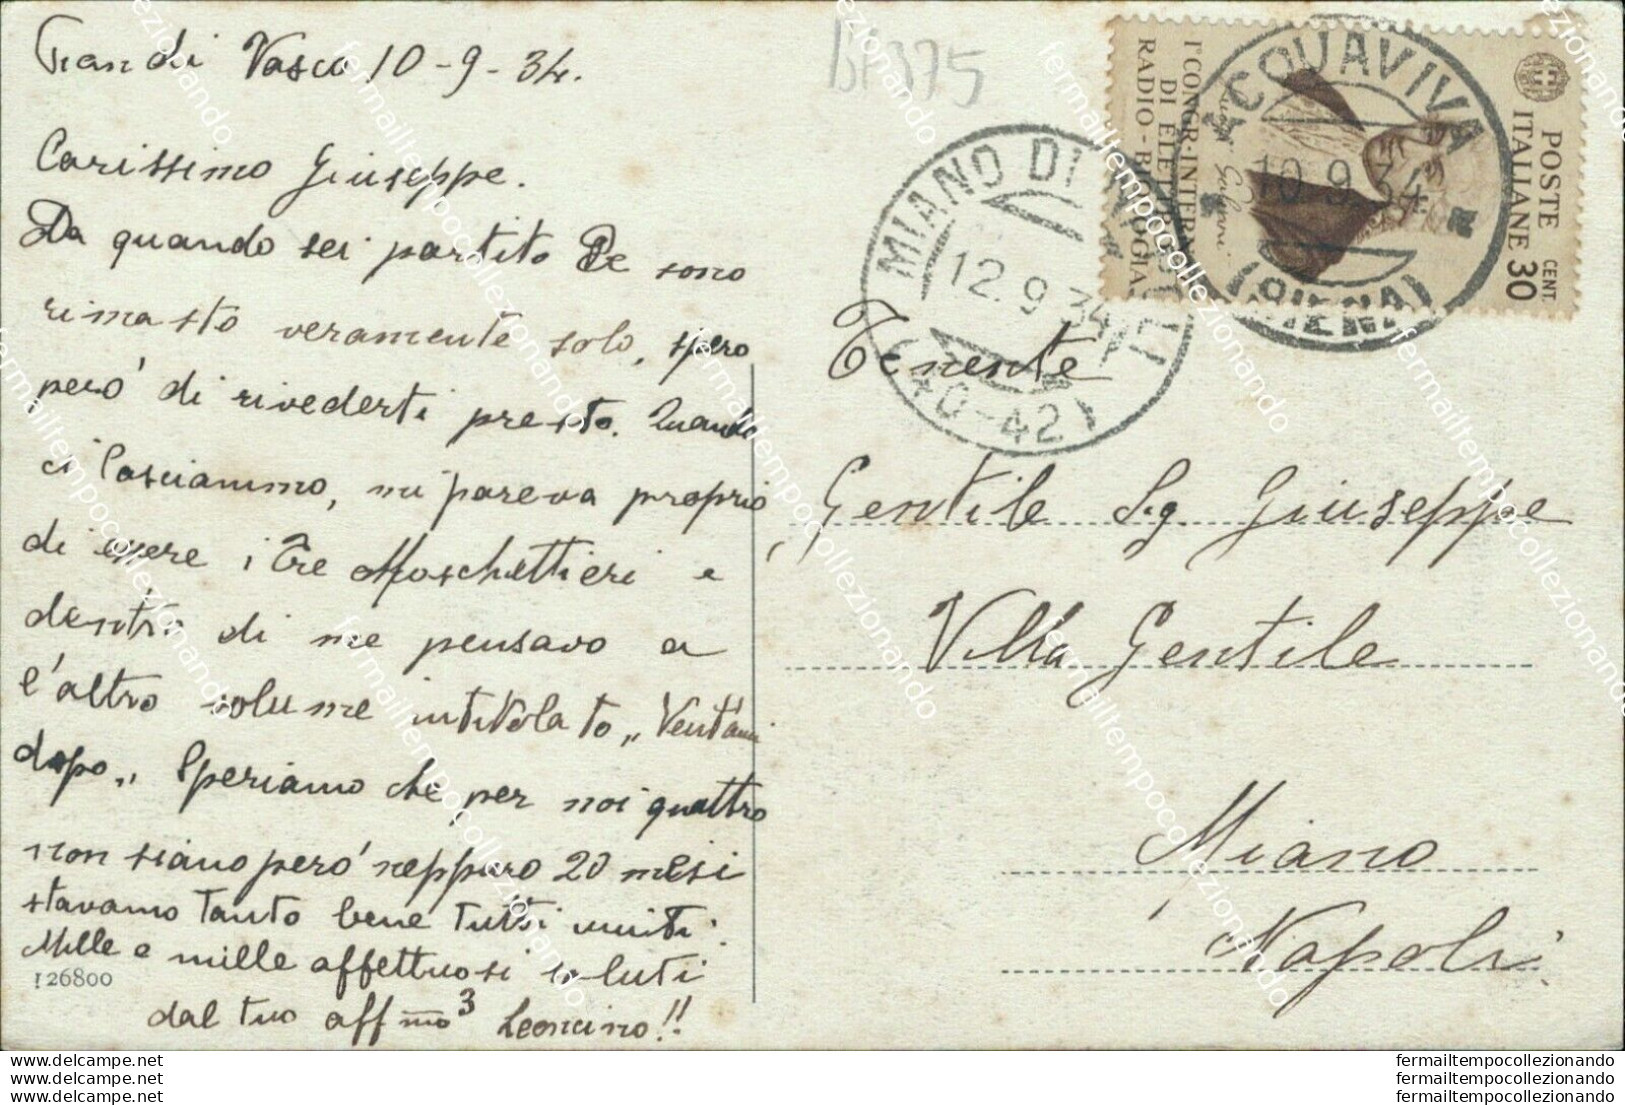 Pian di Vasco 10-9-34.
Carissimo Giuseppe.
Da quando sei partito Re sono
rimasto veramente solo, spero
però di rivederti presto. Quando
ci lasciammo, mi pareva proprio
di essere i Tre Moschettieri e
dentro di me pensavo a
l'altro volume intitolato „Vent'anni
dopo„ Speriamo che per noi quattro
non siano però neppure 20 mesi
stavamo tanto bene tutti uniti.
Mille e mille affettuosi saluti
dal tuo affmo³ Leoncino!!
126800
BF375
I°CONGR·INTERN
DI ELETTRO
RADIO-BIOLOGIA
Luigi Galvani
POSTE
ITALIANE
CENT.
30
ACQUAVIVA
10.9.34
(SIENA)
MIANO DI NAPOLI
12.9.34
(40-42)
Tenente
Gentile Sig. Giuseppe
Villa Gentile
Miano
Napoli
fermailtempocollezionando
fermailtempocollezionando
fermailtempocollezionando
delcampe.net
delcampe.net
delcampe.net
fermailtempocollezionando
fermailtempocollezionando
fermailtempocollezionando